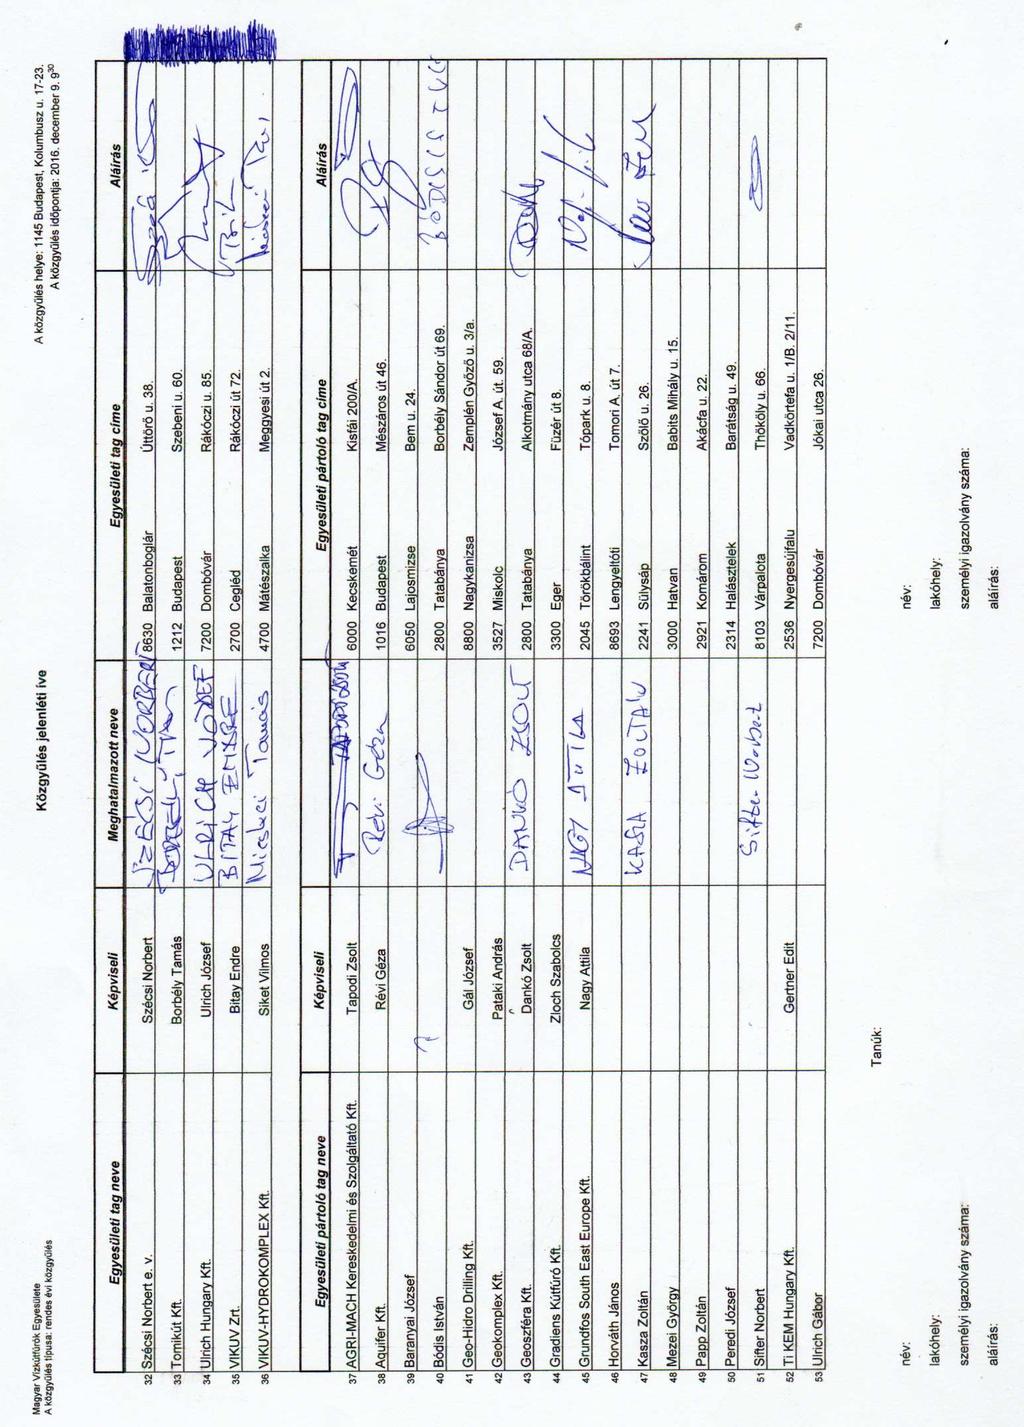 Magyar Vízkútfúrók Egyesülete
A közgyűlés típusa: rendes évi közgyűlés
Közgyűlés jelenléti íve
A közgyűlés helye: 1145 Budapest, Kolumbusz u. 17-23.
A közgyűlés időpontja: 2016. december 9. 9³⁰
Egyesületi tag neve Képviseli Meghatalmazott neve Egyesületi tag címe Aláírás
32 Szécsi Norbert e. v. Szécsi Norbert SZÉCSI NORBERT 8630 Balatonboglár Úttörő u. 38.
33 Tomikút Kft. Borbély Tamás 1212 Budapest Szebeni u. 60.
34 Ulrich Hungary Kft. Ulrich József ULRICH JÓZSEF 7200 Dombóvár Rákóczi u. 85.
35 VIKUV Zrt. Bitay Endre BITAY ENDRE 2700 Cegléd Rákóczi út 72.
36 VIKUV-HYDROKOMPLEX Kft. Siket Vilmos Tamás 4700 Mátészalka Meggyesi út 2.
Egyesületi pártoló tag neve Képviseli Egyesületi pártoló tag címe Aláírás
37 AGRI-MACH Kereskedelmi és Szolgáltató Kft. Tapodi Zsolt 6000 Kecskemét Kisfái 200/A.
38 Aquifer Kft. Révi Géza Révi Géza 1016 Budapest Mészáros út 46.
39 Baranyai József 6050 Lajosmizse Bem u. 24.
40 Bódis István 2800 Tatabánya Borbély Sándor út 69.
41 Geo-Hidro Drilling Kft. Gál József 8800 Nagykanizsa Zemplén Győző u. 3/a.
42 Geokomplex Kft. Pataki András 3527 Miskolc József A. út. 59.
43 Geoszféra Kft. Dankó Zsolt DANKÓ ZSOLT 2800 Tatabánya Alkotmány utca 68/A.
44 Gradiens Kútfúró Kft. Zloch Szabolcs 3300 Eger Füzér út 8.
45 Grundfos South East Europe Kft. Nagy Attila NAGY ATTILA 2045 Törökbálint Tópark u. 8.
46 Horváth János 8693 Lengyeltóti Tomori A. út 7.
47 Kasza Zoltán KASZA ZOLTÁN 2241 Sülysáp Szőlő u. 26.
48 Mezei György 3000 Hatvan Babits Mihály u. 15.
49 Papp Zoltán 2921 Komárom Akácfa u. 22.
50 Peredi József 2314 Halásztelek Barátság u. 49.
51 Sifter Norbert Sifter Norbert 8103 Várpalota Thököly u. 66.
52 Ti KEM Hungary Kft. Gertner Edit 2536 Nyergesújfalu Vadkörtefa u. 1/B. 2/11.
53 Ulrich Gábor 7200 Dombóvár Jókai utca 26.
Tanúk:
név: név:
lakóhely: lakóhely:
személyi igazolvány száma: személyi igazolvány száma:
aláírás: aláírás: